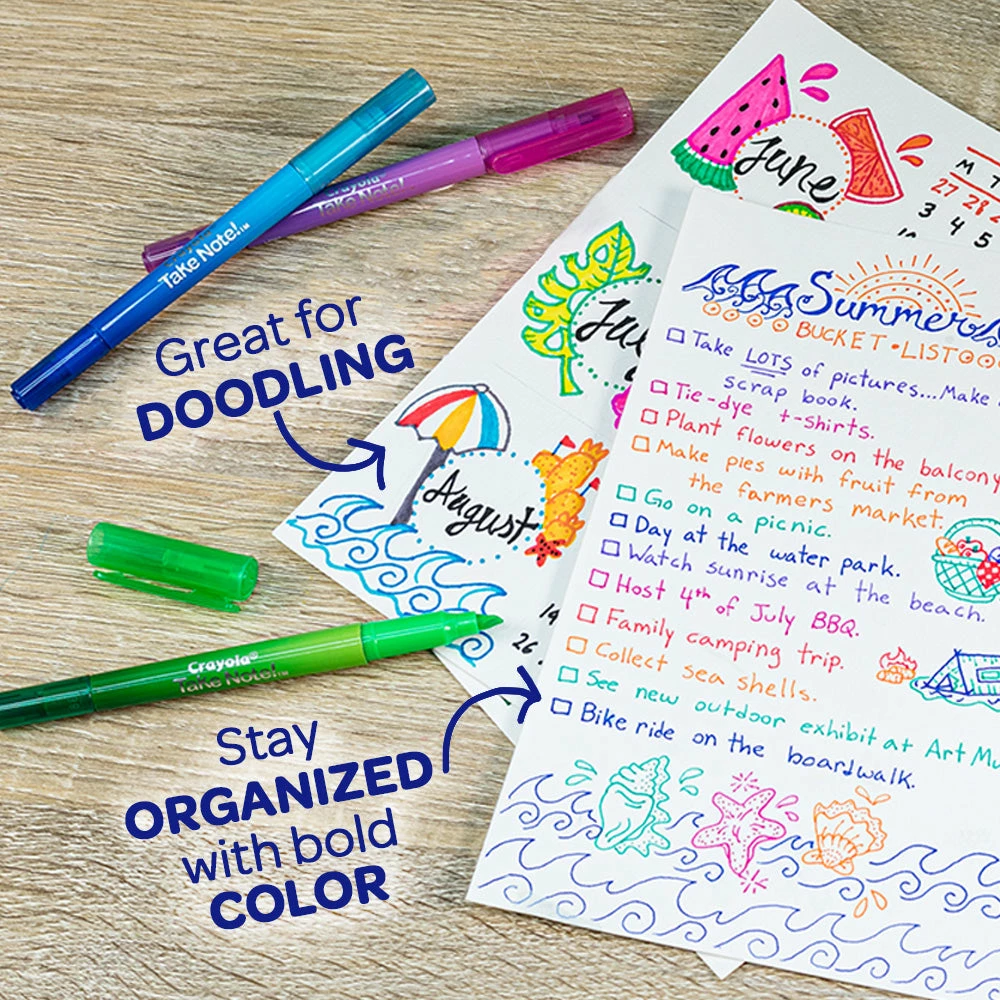 Crayola
Take Note!™
Take Note!™
Great for
DOODLING
June
M T
27 28 2
3 4 5
10
August
19
26
Summer
BUCKET • LIST
Take LOTS of pictures...Make
scrap book.
Tie-dye t-shirts.
Plant flowers on the balcony
Make pies with fruit from
the farmers market.
Go on a picnic.
Day at the water park.
Watch sunrise at the beach.
Host 4th of July BBQ.
Family camping trip.
Collect sea shells.
See new outdoor exhibit at Art Mu
Bike ride on the boardwalk.
Crayola®
Take Note!™
Stay
ORGANIZED
with bold
COLOR